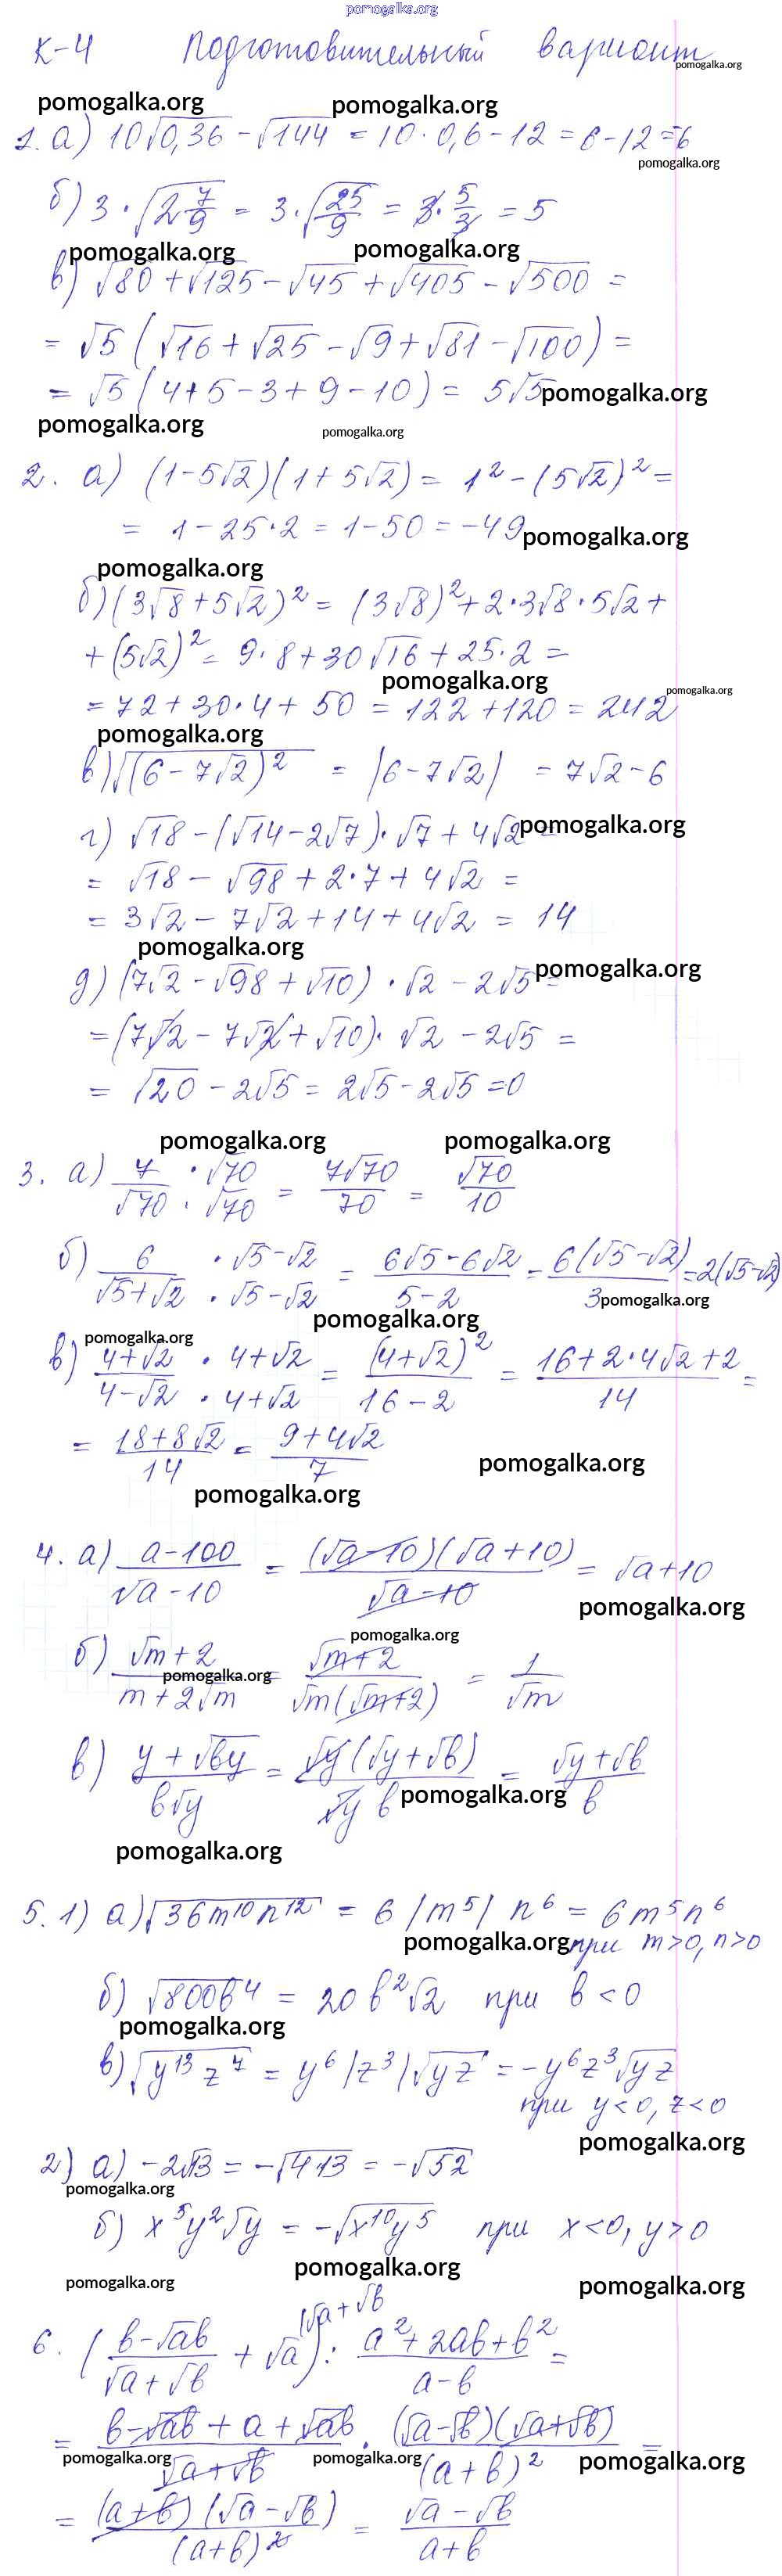 pomogalka.org
К-4 Подготовительный вариант
pomogalka.org
pomogalka.org pomogalka.org
1. а) 10√0,36 - √144 = 10·0,6 - 12 = 6 - 12 = -6
pomogalka.org
б) 3·√2 7/9 = 3·√25/9 = 3·5/3 = 5
pomogalka.org pomogalka.org
в) √80 + √125 - √45 + √405 - √500 =
= √5 (√16 + √25 - √9 + √81 - √100) =
= √5 (4+5-3+9-10) = 5√5 pomogalka.org
pomogalka.org pomogalka.org
2. а) (1-5√2)(1+5√2) = 1² - (5√2)² =
= 1 - 25·2 = 1 - 50 = -49 pomogalka.org
pomogalka.org
б) (3√8 + 5√2)² = (3√8)² + 2·3√8·5√2 +
+ (5√2)² = 9·8 + 30√16 + 25·2 =
pomogalka.org pomogalka.org
= 72 + 30·4 + 50 = 122 + 120 = 242
pomogalka.org
в) √(6-7√2)² = |6-7√2| = 7√2-6
г) √18 - (√14 - 2√7)·√7 + 4√2 = pomogalka.org
= √18 - √98 + 2·7 + 4√2 =
= 3√2 - 7√2 + 14 + 4√2 = 14
pomogalka.org
д) (7√2 - √98 + √10)·√2 - 2√5 = pomogalka.org
= (7√2 - 7√2 + √10)·√2 - 2√5 =
= √20 - 2√5 = 2√5 - 2√5 = 0
pomogalka.org pomogalka.org
3. а) 7/√70 ·√70/·√70 = 7√70/70 = √70/10
б) 6/(√5+√2) ·√5-√2/·√5-√2 = (6√5-6√2)/(5-2) = 6(√5-√2)/3 = 2(√5-√2)
pomogalka.org
pomogalka.org
pomogalka.org
в) (4+√2)/(4-√2) ·4+√2/·4+√2 = (4+√2)²/(16-2) = (16+2·4√2+2)/14 =
= (18+8√2)/14 = (9+4√2)/7
pomogalka.org
pomogalka.org
4. а) (a-100)/(√a-10) = (√a-10)(√a+10)/(√a-10) = √a+10
pomogalka.org
pomogalka.org
б) (√m+2)/(m+2√m) = (√m+2)/(√m(√m+2)) = 1/√m
pomogalka.org
в) (y+√by)/(b√y) = √y(√y+√b)/(√y b) = (√y+√b)/b
pomogalka.org
pomogalka.org
5. 1) а) √36m¹⁰n¹² = 6|m⁵| n⁶ = 6m⁵n⁶
pomogalka.org при m>0, n>0
б) √800b⁴ = 20b²√2 при b<0
pomogalka.org
в) √y¹³z⁷ = y⁶|z³|√yz = -y⁶z³√yz
при y<0, z<0
pomogalka.org
2) а) -2√13 = -√4·13 = -√52
pomogalka.org
б) x⁵y²√y = -√x¹⁰y⁵ при x<0, y>0
pomogalka.org
pomogalka.org pomogalka.org
6. ((b-√ab)/(√a+√b) + √a (√a+√b) : (a²+2ab+b²)/(a-b) =
= (b-√ab+a+√ab)/(√a+√b) · (√a-√b)(√a+√b)/(a+b)² =
pomogalka.org pomogalka.org pomogalka.org
= (a+b)(√a-√b)/(a+b)² = (√a-√b)/(a+b)